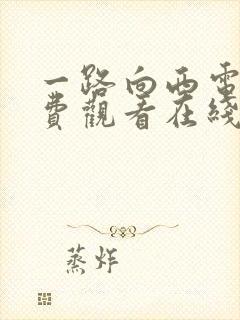 一路向西電
費觀看在綫
蒸炸